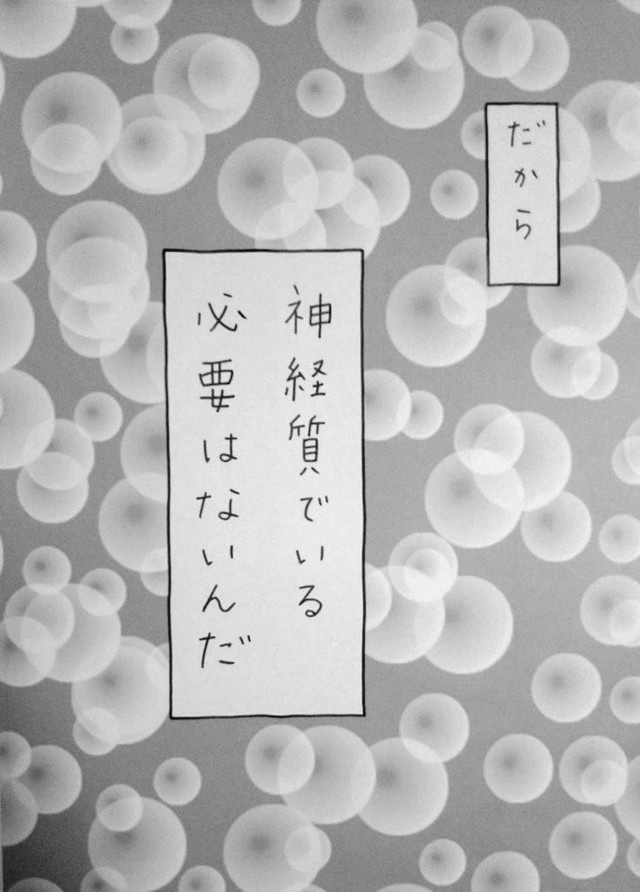 だから
神経質でいる
必要はないんだ